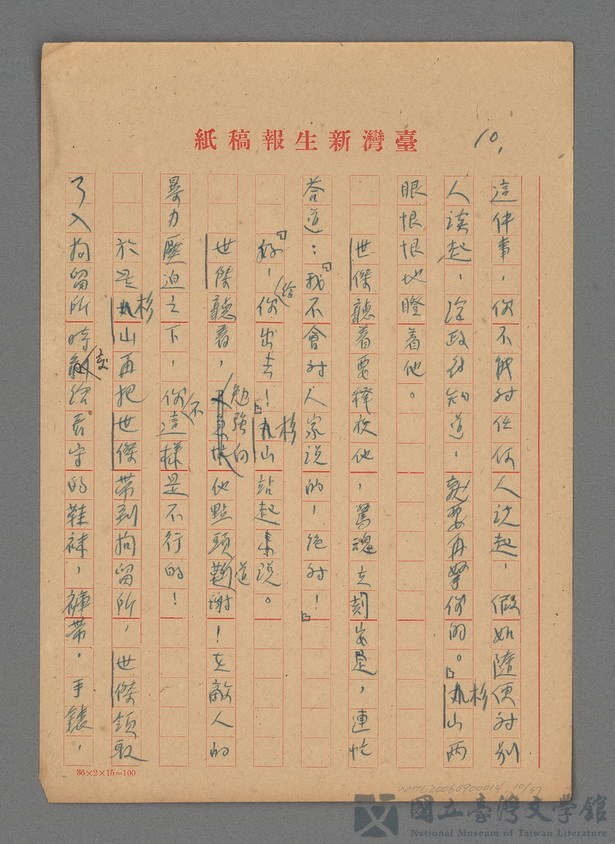 紙稿報生新灣臺
10,
這件事,你不能对任何人說起,假如隨便对别
人談起,给政府知道,就要再拏你的。」杉山两
眼恨恨地瞪着他。
世傑聽着要釋放他,驚魂立刻安定,連忙
荅道:「我不會对人家說的,絕对!」
「好,你给出去!」杉山站起来說。
世傑聽着,勉強向他點頭道謝!在敵人的
暴力壓迫之下,你不這樣是不行的!
於是杉山再把世傑带到拘留所,世傑領取
了入拘留所時交给看守的鞋襪,褲带,手錶,
36×2×15=100
NMTL20060900014 10/37
國立臺灣文學館
National Museum of Taiwan Literature